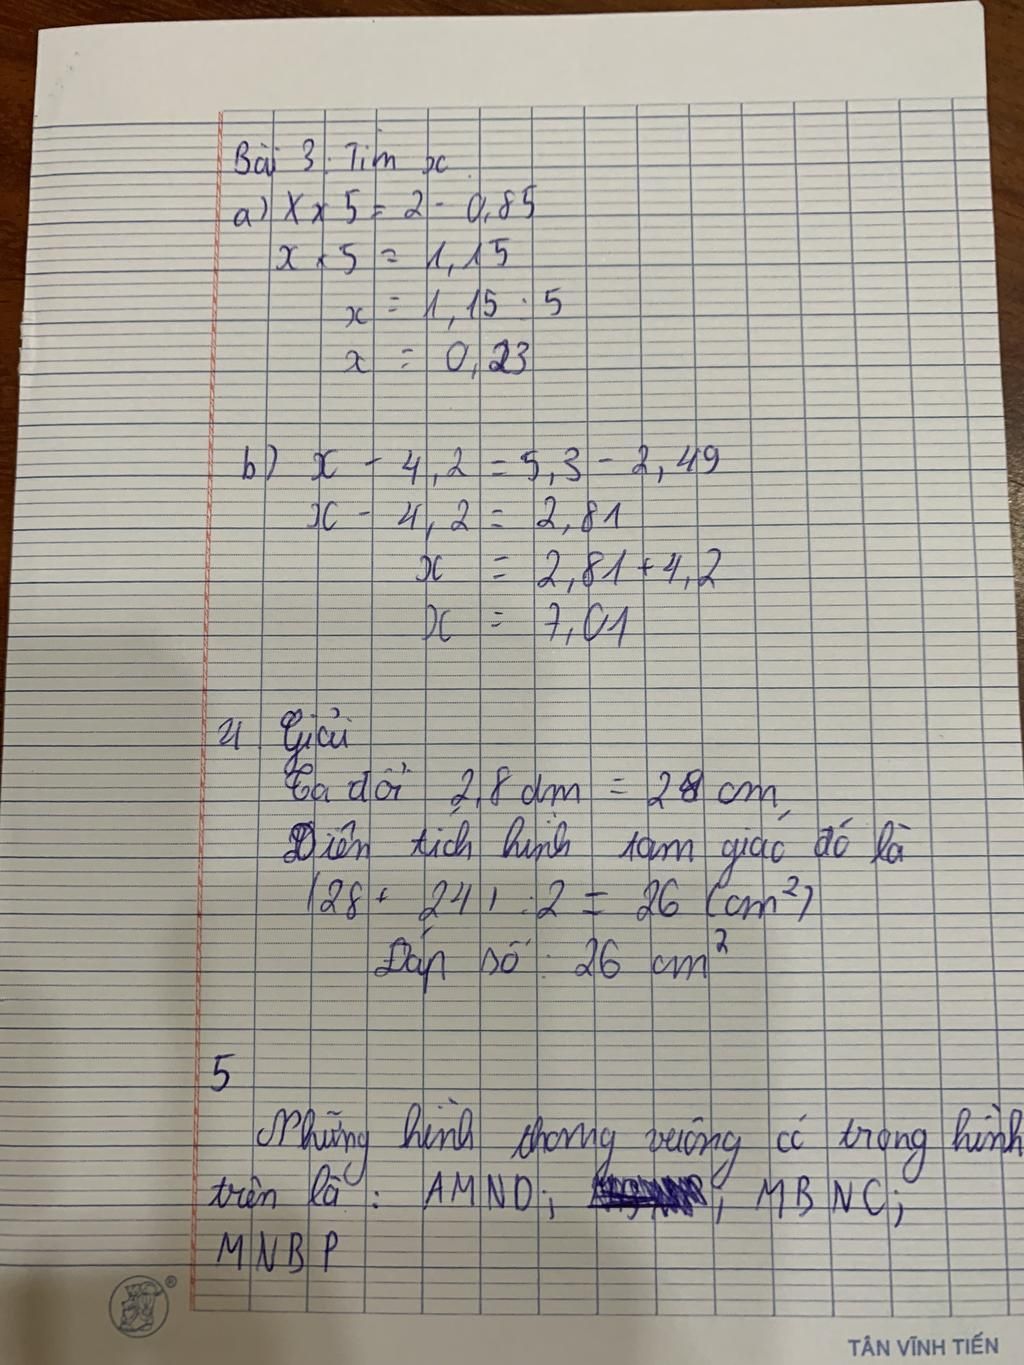 Bài 3: Tìm x
a) X x 5 = 2 - 0,85
x x 5 = 1,15
x = 1,15 : 5
x = 0,23
b) x - 4,2 = 5,3 - 2,49
x - 4,2 = 2,81
x = 2,81 + 4,2
x = 7,01
4 Giải
Ta đổi 2,8 dm = 28 cm
Diên tích hình tam giác đó là
(28 + 24) : 2 = 26 (cm²)
Đáp số : 26 cm²
5
Những hình thong vuông có trong hình
trên là : AMND; ; MBNC;
MNBP
®
TÂN VĨNH TIẾN